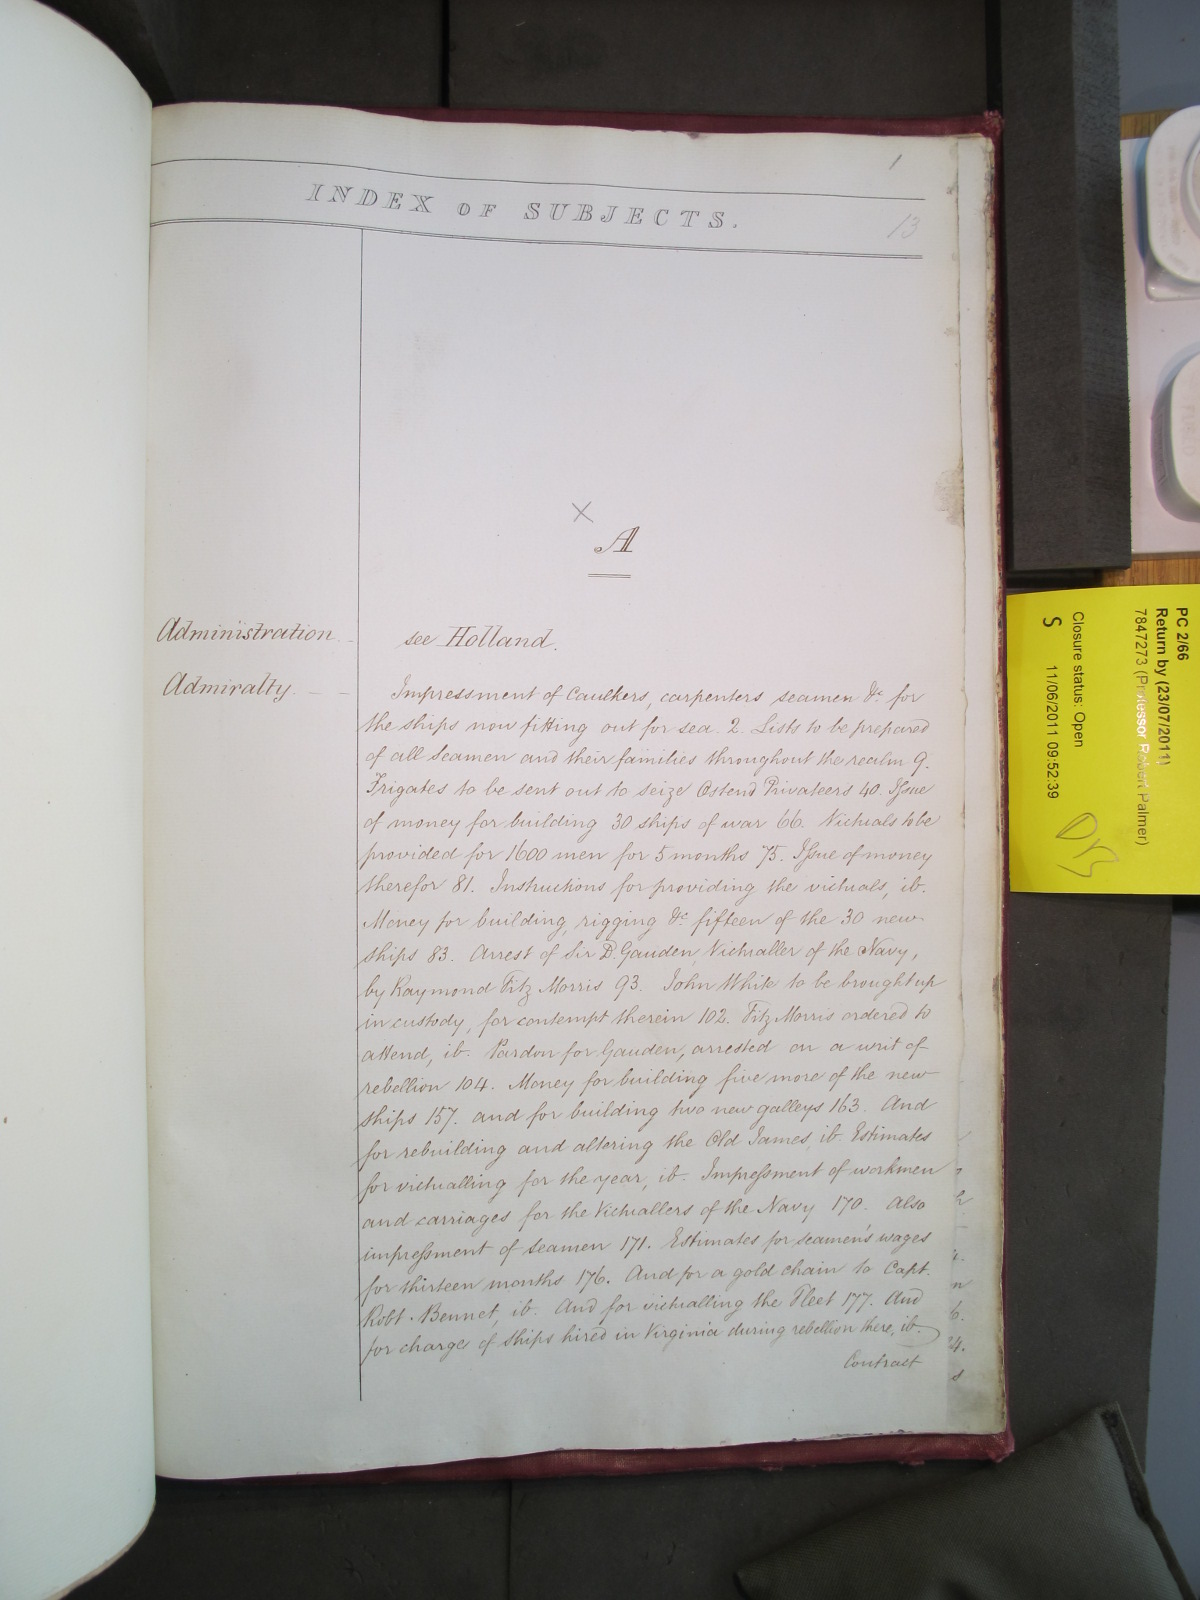 1
INDEX OF SUBJECTS.
13
×
A
Administration
see Holland.
Admiralty.
Impressment of Caulkers, carpenters seamen &c for
the ships now fitting out for sea 2. Lists to be prepared
of all Seamen and their families throughout the realm 9.
Frigates to be sent out to seize Ostend Privateers 40. Issue
of money for building 30 ships of war 66. Victuals to be
provided for 1600 men for 5 months 75. Issue of money
therefor 81. Instructions for providing the victuals, ib.
Money for building, rigging &c fifteen of the 30 new
ships 83. Arrest of Sir D. Gauden, Victualler of the Navy,
by Raymond Fitz Morris 93. John White to be brought up
in custody, for contempt therein 102. Fitz Morris ordered to
attend, ib. Pardon for Gauden, arrested on a writ of
rebellion 104. Money for building five more of the new
ships 157. and for building two new galleys 163. And
for rebuilding and altering the Old James, ib. Estimates
for victualling for the year, ib. Impressment of workmen
and carriages for the Victuallers of the Navy 170. Also
impressment of seamen 171. Estimates for seamen's wages
for thirteen months 176. And for a gold chain to Capt.
Robt. Bennet, ib. And for victualling the Fleet 177. And
for charge of ships hired in Virginia during rebellion there, ib.
Contract
PC 2/66
Return by (23/07/2011)
7847273 (Professor Robert Palmer)
Closure status: Open
S 11/06/2011 09:52:39